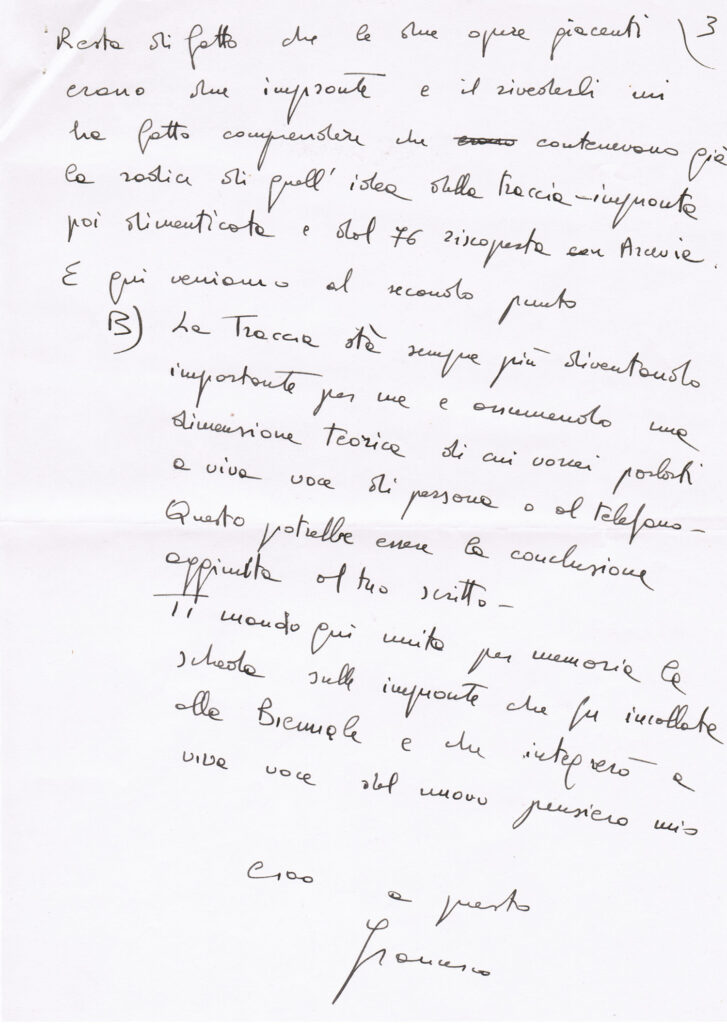 3
Resta di fatto che le due opere giacenti
erano due impronte e il rivederli mi
ha fatto comprendere che erano contenevano già
la radice di quell'idea della traccia-impronta
poi dimenticata e dal 76 riscoperta con Arcevia.
E qui veniamo al secondo punto
B) La Traccia stà sempre più diventando
importante per me e assumendo una
dimensione Teorica di cui vorrei parlarti
a viva voce di persona o al telefono-
Questo potrebbe essere la conclusione
aggiunta al tuo scritto-
Ti mando qui unita per memoria la
scheda sulle impronte che fu incollata
alla Biennale e che integrerò a
viva voce del nuovo pensiero mio
Ciao a presto
Francesco